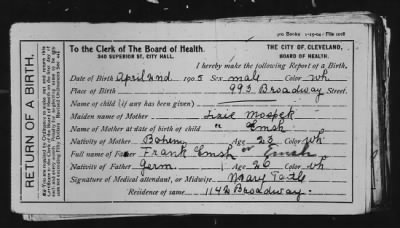 To the Clerk of The Board of Health.
340 SUPERIOR ST. CITY HALL.
THE CITY OF CLEVELAND,
BOARD OF HEALTH.
I hereby make the following Report of a Birth.
Date of Birth April 2nd 1905 Sex male Color wh
Place of Birth 993 Broadway Street.
Name of child (if any has been given)
Maiden name of Mother Lizie
Name of Mother at date of birth of child " Emsh
Nativity of Mother Bohem Age 23 Color wh
Full name of Father Frank Emsh or
Nativity of Father Germ Age 26 Color wh
Signature of Medical attendant, or Midwife. Mary
Residence of same 1142 Broadway.
RETURN OF A BIRTH.